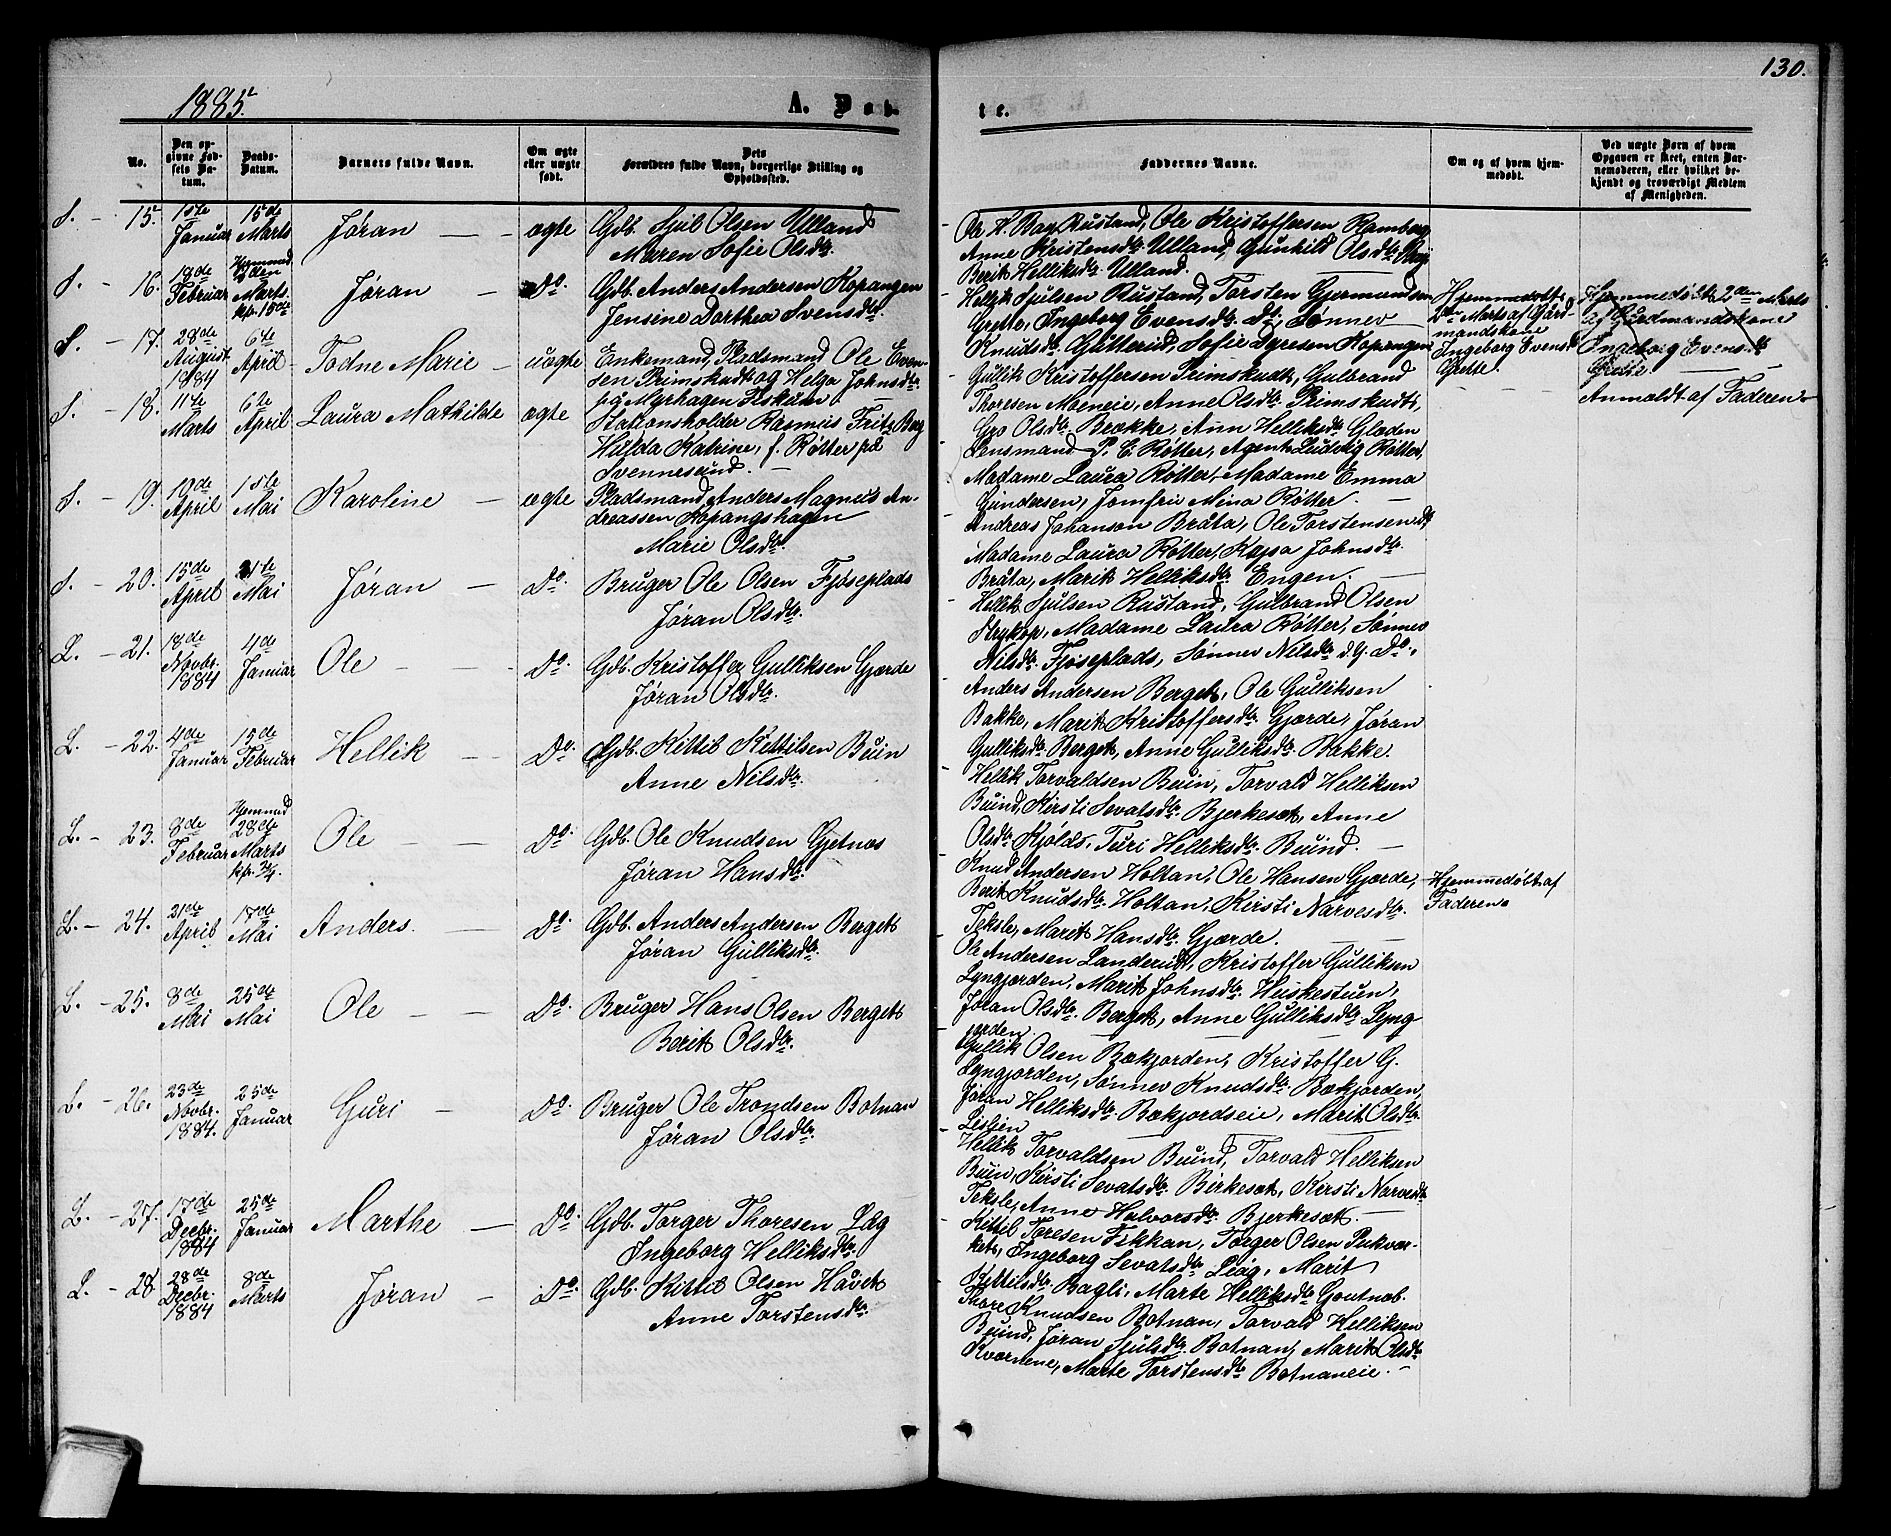 130.
1885.
A. Døb-
te.
No.
Den op-
givne Fød-
sels Da-
tum.
Daabs-
Datum.
Barnets fulde Navn.
Om ægte
eller uægte
født.
Dets
Forældres fulde Navn, borgerlige Stilling og
Opholdssted.
Faddernes Navne.
Om og af hvem hjem-
medøbt.
Ved uægte Børn af hvem
Opgaven er skeet, enten Bar-
nemoderen, eller hvilket be-
kjendt og troværdigt Medlem
af Menigheden.
S. - 15.
Januar
15de
Marts
Jøran
ægte
Gdb. Sjul Olsen Ulland
Maren Sofie Olsdtr.
Ole H. Rustand, Ole Kristoffersen Ramberg
Anne Kristensdtr. Ulland, Gunhild Olsdtr.
Berit Helliksdtr. Ulland.
S. - 16.
18de
Februar
Hjemmed
2den
Marts
kfr. 15de
Jøran
Do.
Gdb. Anders Andersen Kopangen
Jensine Dorthea Svensdtr.
Hellik Sjulsen Rustand, Torsten Gjermundsen
Grette, Ingeborg Evensdtr. Do., Sønnev
Knudsdtr. Gutterud, Sofie Kopangen
Hjemmedøbt
2den Marts af Gård-
mandskone
Ingeborg Evensd
Grette.
Hjemmedøbt 2den Marts
af Gårdmandskone
Ingeborg Evensdtr
Grette
S. - 17.
28de
August
1884
6te
April
Todne Marie
uægte
Enkemand, Pladsmand Ole Even-
sen Primskudt og Helga Johnsdtr.
på Myrhagen Fiskum
Gullik Kristoffersen Primskudt, Gulbrand
Thoresen Moeneie, Anne Olsdtr. Primskudt,
Gro Olsdtr. Brække, Ann Helliksdtr. Gladen
Anmeldt af Faderen.
S. - 18.
11te
Marts
6te
April
Laura Mathilde
ægte
Stationsholder Rasmus Fritz Berg
Hilda Katrine, f. Røtter på
Svennesund.
Lensmand P. E. Røtter, Agent Ludvig Røtter,
Madame Laura Røtter, Madame Emma
Gundersen, Jomfru Mina Røtter.
S. - 19.
19de
April
18te
Mai
Karoline
ægte
Pladsmand Anders Magnus An-
dreassen Kopangshagen
Marie Olsdtr.
Andreas Johanson Bråta, Ole Torstensen
Madame Laura Røtter, Kajsa Johnsdtr.
Bråta, Marit Helliksdtr. Engen.
S. - 20.
15de
April
21te
Mai
Jøran
Do.
Bruger Ole Olsen Fjøseplads
Jøran Olsdtr.
Hellik Sjulsen Rustand, Gulbrand Olsen
Strykop, Madame Laura Røtter, Sønnev
Nilsdtr. Fjøseplads, Sønnev Nilsdtr d.y. Do.
L. - 21.
18de
Novbr.
1884
4de
Januar
Ole
Do.
Gdb. Kristoffer Gulliksen Gjærde
Jøran Olsdtr.
Anders Andersen Berget, Ole Gulliksen
Bakke, Marit Kristoffersdtr. Gjærde, Jøran
Gulliksdtr. Berget, Anne Gulliksdtr. Bakke.
L. - 22.
4de
Januar
15de
Februar
Hellik
Do.
Gdb. Kittil Kittilsen Buin
Anne Nilsdtr.
Hellik Torvaldsen Buin, Torvald Helliksen
Buind, Kirsti Sevatsdtr. Bjerkesæt, Anne
Olsdtr. Kjølds, Turi Helliksdtr. Buind.
L. - 23.
8de
Februar
Hjemmed
28de
Marts
kfr. 3/4.
Ole
Do.
Gdb. Ole Knudsen Gjetnos
Jøran Hansdtr.
Knud Andersen Holtan, Ole Hansen Gjærde,
Berit Knudsdtr. Holtan, Kirsti Narvesdtr.
Teksle, Marit Hansdtr. Gjærde.
Hjemmedøbt af
Faderen.
L. - 24.
21de
April
17de
Mai
Anders.
Do.
Gdb. Anders Andersen Berget
Jøran Gulliksdtr.
Ole Andersen Landerud, Kristoffer Gulliksen
Lyngjorden, Marit Johnsdtr. Huskestuen,
Jøran Olsdtr. Berget, Anne Gulliksdtr. Lyng
jorden.
L. - 25.
8de
Mai
25de
Mai
Ole
Do.
Bruger Hans Olsen Berget
Berit Olsdtr.
Gullik Olsen Bækjorden, Kristoffer G.
Lyngjorden, Sønnev Knudsdtr. Bækjorden,
Jøran Helliksdtr. Bækjordseie, Marit Olsdtr.
Listien
L. - 26.
23de
Novbr.
1884.
25de
Januar
Guri
Do.
Bruger Ole Trondsen Botnan
Jøran Olsdtr.
Hellik Torvaldsen Buind, Torvald Helliksen
Buin, Kirsti Sevatsdtr. Birkesæt, Kirsti Narvesdtr
Teksle, Anne Halvorsdtr. Bjerkesæt.
L. - 27.
17de
Decbr.
1884
25de
Januar
Marthe
Do.
Gdb. Torger Thoresen Låg
Ingeborg Helliksdtr.
Kittil Toresen Fikkan, Torger Olsen Pukver-
ket, Ingeborg Sevatsdtr. Låg, Marit
Kittilsdtr. Bagli, Marte Helliksdtr. Goutnob.
L. - 28
28de
Decbr.
1884
8de
Marts
Jøran
Do.
Gdb. Kittil Olsen Haviet
Anne Torstensdtr.
Thore Knudsen Botnan, Torvald Helliksen
Buind, Jøran Sjulsdtr. Botnan, Marit Olsdtr
Kvernene, Marte Torstensdtr. Botnaneie.